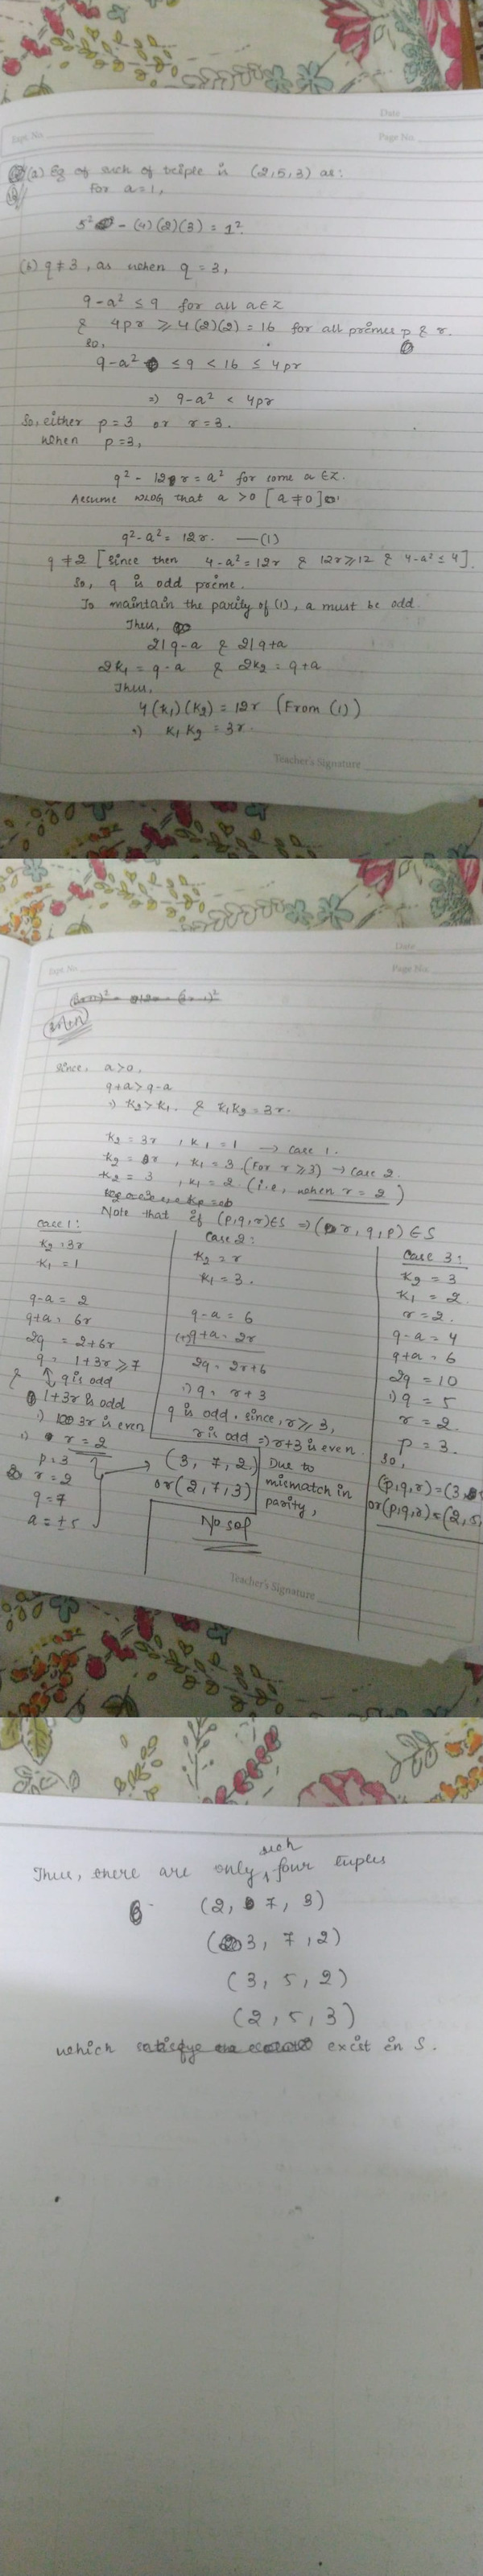 Date
Expt. No.
Page No.
(a) Eg of such of triple is (2,5,3) as:
For a=1,
5² - (4)(2)(3) = 1².
(b) q≠3, as when q = 3,
9-a² ≤ 9 for all a∈Z
& 4pr ≥ 4(2)(2) = 16 for all primes p & r.
so,
9-a² ≤ 9 < 16 ≤ 4pr
⇒ 9-a² < 4pr
So, either p = 3 or r = 3.
when p=3,
q² - 12r = a² for some a ∈Z.
Assume WLOG that a > 0 [a ≠ 0]
q²-a² = 12r. —(1)
q ≠ 2 [since then 4-a² = 12r & 12r ≥ 12 & 4-a² ≤ 4].
So, q is odd prime.
To maintain the parity of (1), a must be odd.
Then,
2|q-a & 2|q+a
2k₁ = q-a & 2k₂ = q+a
Then,
4(k₁)(k₂) = 12r (From (1))
⇒ k₁k₂ = 3r.
Teacher's Signature
Date
Expt. No.
Page No.
Since, a>0,
q+a > q-a
⇒ k₂ > k₁. & k₁k₂ = 3r.
k₂ = 3r , k₁ = 1 → Case 1.
k₂ = r , k₁ = 3 (For r ≥ 3) → Case 2.
k₂ = 3 , k₁ = 2 (i.e, when r = 2)
Note that if (p,q,r)∈S ⇒ (r,q,p)∈S
Case 1:
k₂ = 3r
k₁ = 1
q-a = 2
q+a = 6r
2q = 2+6r
q = 1+3r ≥ 7
& q is odd
1+3r is odd
⇒ 3r is even
⇒ r = 2
p = 3
r = 2
q = 7
a = ±5
(3, 7, 2)
or (2, 7, 3)
Case 2:
k₂ = r
k₁ = 3.
q-a = 6
(+) q+a = 2r
2q = 2r+6
⇒ q = r+3
q is odd. since, r ≥ 3,
r is odd ⇒ r+3 is even.
Due to
mismatch in
parity,
No sol
Case 3:
k₂ = 3
k₁ = 2
r = 2.
q-a = 4
q+a = 6
2q = 10
⇒ q = 5
r = 2.
p = 3.
So,
(p,q,r) = (3,
or (p,q,r) = (2, 5,
Teacher's Signature
Thus, there are only such four tuples
(2, 7, 3)
(3, 7, 2)
(3, 5, 2)
(2, 5, 3)
which exist in S.